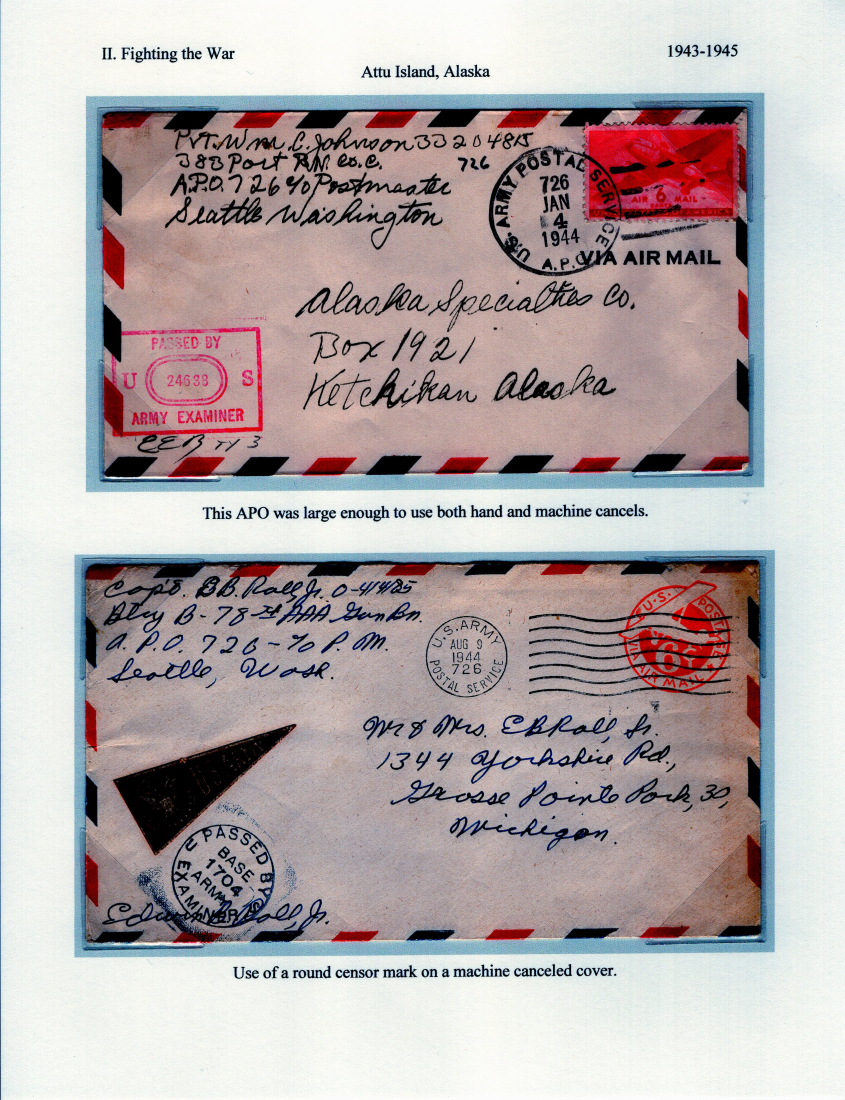 II. Fighting the War
1943-1945
Attu Island, Alaska
Pvt. Wm. C. Johnson 33204815
383 Port BN. Co. C. 726
A.P.O. 726 c/o Postmaster
Seattle Washington
U.S. ARMY POSTAL SERVICE
726
JAN
4
1944
A.P.O.
AIR 6 MAIL
CENTS
VIA AIR MAIL
Alaska Specialties Co.
Box 1921
Ketchikan Alaska
PASSED BY
U 24638 S
ARMY EXAMINER
This APO was large enough to use both hand and machine cancels.
Capt. E.B. Roll, Jr. O-414125
Btry B-78th AAA Gun Bn.
A.P.O. 726 - c/o P.M.
Seattle, Wash.
U.S. ARMY
AUG 9
1944
726
POSTAL SERVICE
U.S. POSTAGE
6c
VIA AIR MAIL
Mr & Mrs. E B Roll, Sr.
1344 Yorkshire Rd.,
Grosse Pointe Park, 30,
Michigan.
PASSED BY
BASE
1704
ARMY
U S
EXAMINER
Edwin B Roll, Jr.
Use of a round censor mark on a machine canceled cover.